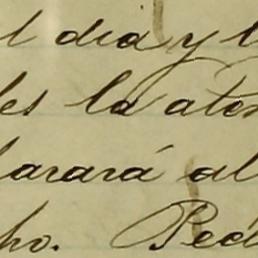 l dia y l
les la aten
larará al
ho. Ped